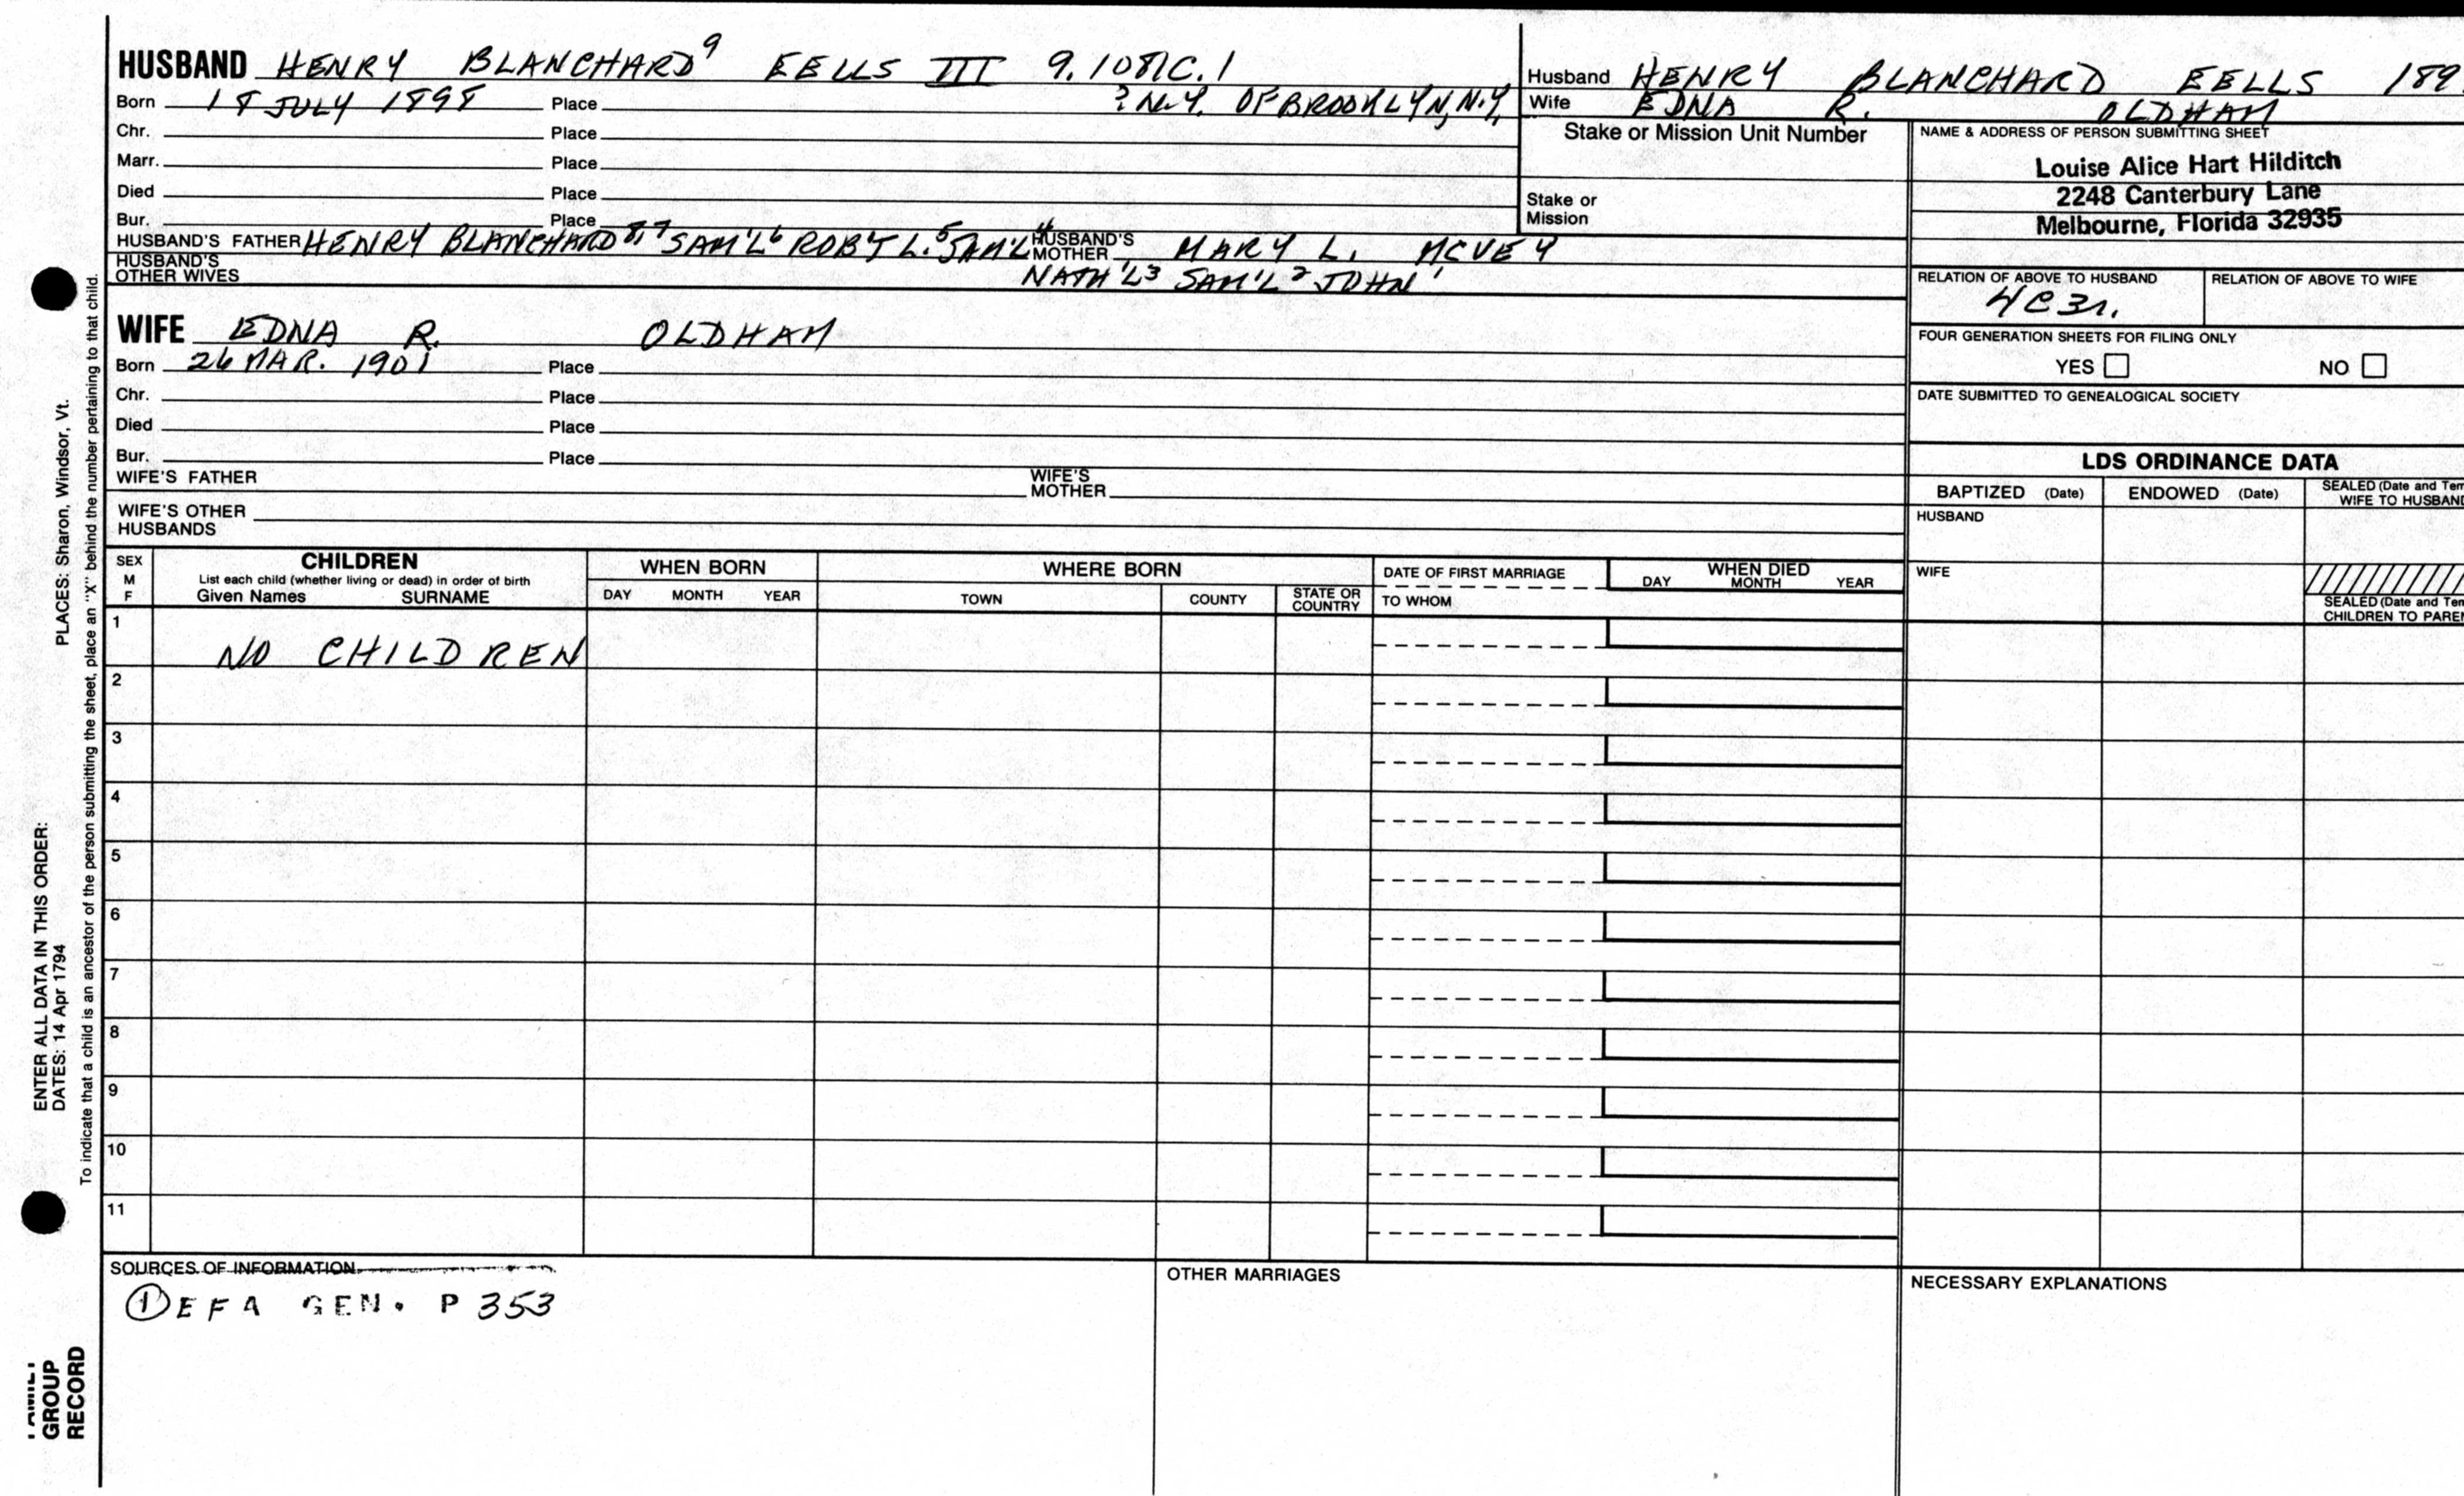 HUSBAND HENRY BLANCHARD⁹ EELLS III 9.1081C.1
Born 18 JULY 1898 Place ? N.Y. OF BROOKLYN, N.Y.
Chr. Place
Marr. Place
Died Place
Bur. Place
HUSBAND'S FATHER HENRY BLANCHARD⁸,⁷ SAM'L⁶ ROB'T L.⁵ SAM'L⁴ HUSBAND'S MOTHER MARY L. MCVEY
HUSBAND'S OTHER WIVES NATH'L³ SAM'L² JOHN¹
WIFE EDNA R. OLDHAM
Born 26 MAR. 1901 Place
Chr. Place
Died Place
Bur. Place
WIFE'S FATHER WIFE'S MOTHER
WIFE'S OTHER HUSBANDS
Husband HENRY BLANCHARD EELLS 189
Wife EDNA R. OLDHAM
Stake or Mission Unit Number
Stake or Mission
NAME & ADDRESS OF PERSON SUBMITTING SHEET
Louise Alice Hart Hilditch
2248 Canterbury Lane
Melbourne, Florida 32935
RELATION OF ABOVE TO HUSBAND RELATION OF ABOVE TO WIFE
4C3r.
FOUR GENERATION SHEETS FOR FILING ONLY
YES NO
DATE SUBMITTED TO GENEALOGICAL SOCIETY
LDS ORDINANCE DATA
BAPTIZED (Date) ENDOWED (Date) SEALED (Date and Tem
WIFE TO HUSBAND
HUSBAND
WIFE
SEALED (Date and Tem
CHILDREN TO PAREN
SEX
M
F
CHILDREN
List each child (whether living or dead) in order of birth
Given Names SURNAME
WHEN BORN
DAY MONTH YEAR
WHERE BORN
TOWN COUNTY STATE OR COUNTRY
DATE OF FIRST MARRIAGE
TO WHOM
WHEN DIED
DAY MONTH YEAR
1 NO CHILDREN
2
3
4
5
6
7
8
9
10
11
SOURCES OF INFORMATION
① EFA GEN. P 353
OTHER MARRIAGES
NECESSARY EXPLANATIONS
ENTER ALL DATA IN THIS ORDER:
DATES: 14 Apr 1794 PLACES: Sharon, Windsor, Vt.
To indicate that a child is an ancestor of the person submitting the sheet, place an "X" behind the number pertaining to that child.
FAMILY
GROUP
RECORD